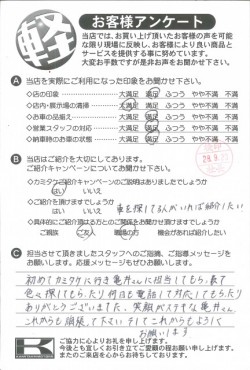 軽
お客様アンケート
当店では、お買い上げ頂いたお客様の声を可能
な限り現場に反映し、お客様により良い商品と
サービスを提供する事に努めています。
大変お手数ですが是非お声をお聞かせ下さい。
A 当店を実際にご利用になった印象をお聞かせ下さい。
◇店の印象 大満足 満足 ふつう やや不満 不満
◇店内・展示場の清掃 大満足 満足 ふつう やや不満 不満
◇お車の品揃え 大満足 満足 ふつう やや不満 不満
◇営業スタッフの対応 大満足 満足 ふつう やや不満 不満
◇納車時のお車の状態 大満足 満足 ふつう やや不満 不満
B 当店はご紹介を大切にしてあります。
ご紹介キャンペーンについてお聞かせ下さい。
◇カミタケご紹介キャンペーンのご説明はありましたでしょうか
はい いいえ
◇ご紹介を頂けますでしょうか
はい いいえ 車を探してる人がいれば紹介したい!
ご親族 ご友人 職場の方 機会があれば紹介したい
C 担当させて頂きましたスタッフへのご指摘、ご指導メッセージを
お願いします。応援メッセージもぜひお願いします。
初めてカミタケに行き亀井さんに担当してもらい、
色々探してもらったり何回も電話して対応してもらったり
ありがとうございました。笑顔がステキな亀井さん
これからも頑張って下さい!!そしてこれからもよろしく
お願いします
K
ご協力に心よりお礼を申し上げます。
今後とも宜しくお引き立てご愛顧の程お願い申し上げます。
またのご来店を心からお待ちしております。